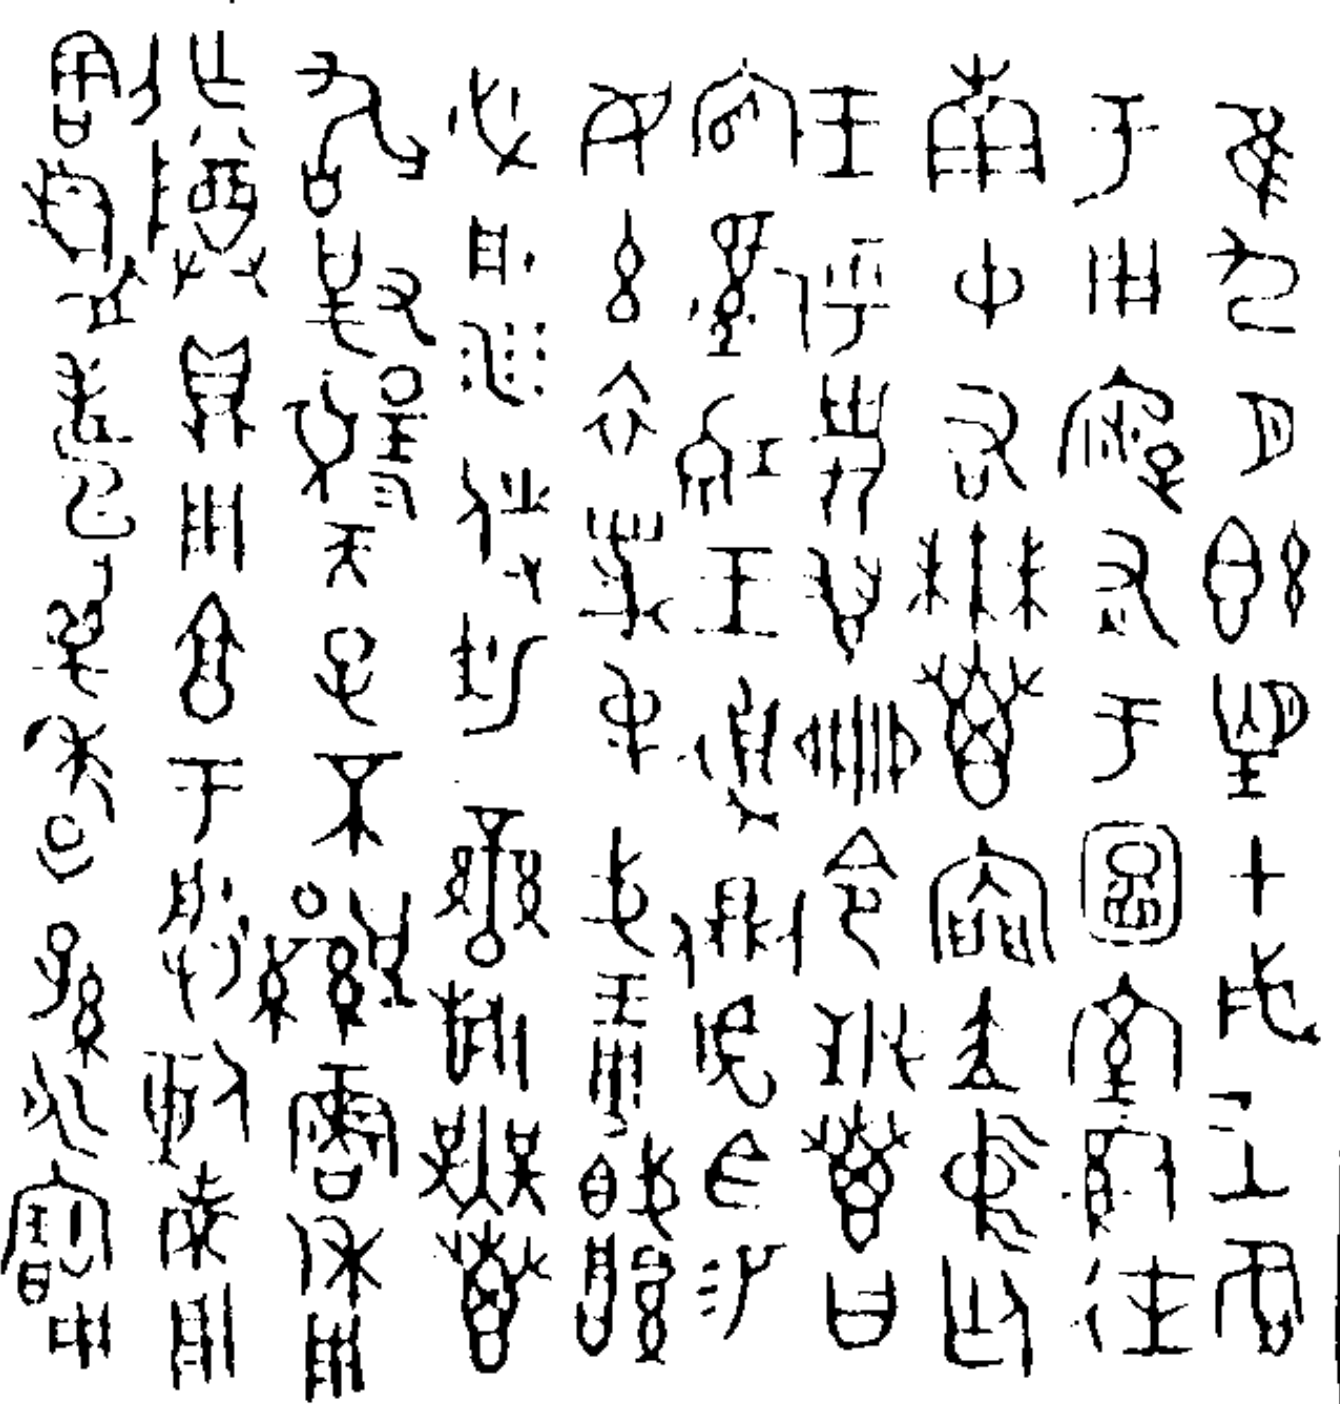 隹九月既望甲戌王各
于周廟述于圖室嗣徒
南中右無叀內門立中廷
王乎史翏冊令無叀曰
官嗣穆王遉側虎臣易
女玄衣黹屯戈琱胾厚
必彤沙攸勒䜌旂無
叀敢對揚天子不顯魯休用
乍尊鼎用享于朕剌考用
割眉壽萬年子孫永寶用